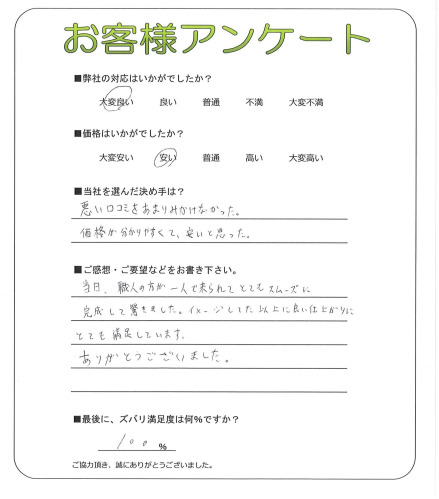 お客様アンケート
■弊社の対応はいかがでしたか？
大変良い 良い 普通 不満 大変不満
■価格はいかがでしたか？
大変安い 安い 普通 高い 大変高い
■当社を選んだ決め手は？
悪い口コミをあまりみかけなかった。
価格が分かりやすくて、安いと思った。
■ご感想・ご要望などをお書き下さい。
当日、職人の方が一人で来られてとてもスムーズに
完成して驚きました。イメージしてた以上に良い仕上がりに
とても満足しています。
ありがとうございました。
■最後に、ズバリ満足度は何％ですか？
100 ％
ご協力頂き、誠にありがとうございました。